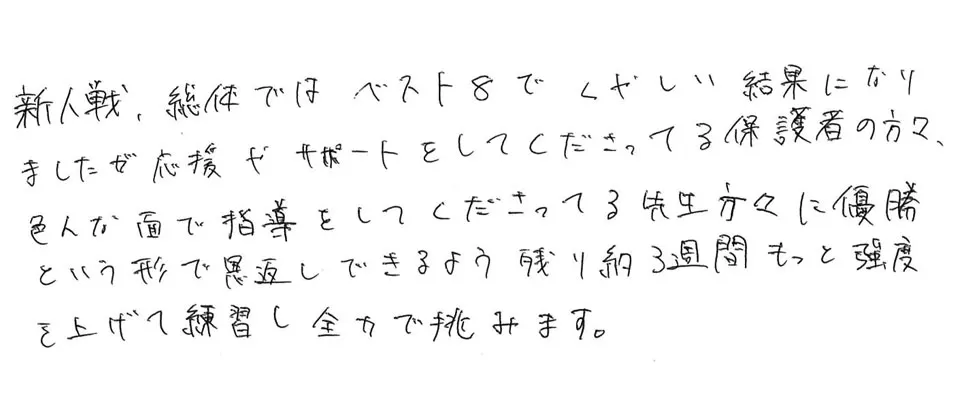 新人戦、総体ではベスト8でくやしい結果になり
ましたが応援やサポートをしてくださってる保護者の方々、
色んな面で指導をしてくださってる先生方々に優勝
という形で恩返しできるよう残り約3週間もっと強度
を上げて練習し全力で挑みます。